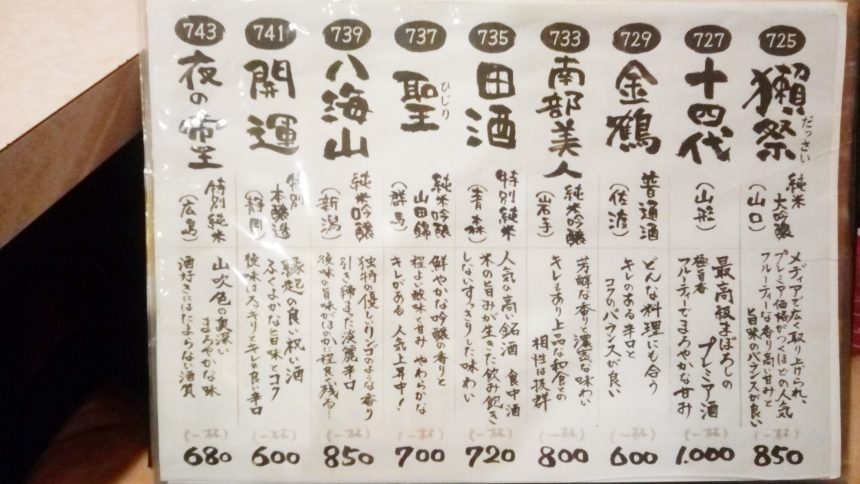 725
獺祭
だっさい
純米
大吟醸
(山口)
メディアで広く取り上げられ、
プレミア価格がつくほどの人気
フルーティーな香り高い甘みと
旨味のバランスが良い
(一杯)
850
727
十四代
(山形)
最高級まぼろしの
プレミア酒
極旨香
フルーティーでまろやかな甘み
(一杯)
1.000
729
金鶴
普通酒
(佐渡)
どんな料理にも合う
キレのある辛口と
コクのバランスが良い
(一杯)
600
733
南部美人
純米吟醸
(岩手)
芳醇な香りと濃密な味わい
キレもあり上品な和食との
相性は抜群
(一杯)
800
735
田酒
特別純米
(青森)
人気の高い銘酒 食中酒
米の旨みが生きた飲み飽き
しないすっきりした味わい
(一杯)
720
737
聖
ひじり
純米吟醸
山田錦
(群馬)
鮮やかな吟醸の香りと
程よい酸味と甘み やわらかな
キレがある 人気上昇中!
(一杯)
700
739
八海山
純米吟醸
(新潟)
独特の優しいリンゴのような香り
引き締まった淡麗辛口
後味の旨味がほのか程良く残る…
(一杯)
850
741
開運
特別
本醸造
(静岡)
縁起の良い祝い酒
ふくよかな旨味とコク
後味はスッキリとキレの良い辛口
(一杯)
600
743
夜の帝王
特別純米
(広島)
山吹色の奥深い
まろやかな味
酒好きにはたまらない酒質
(一杯)
680